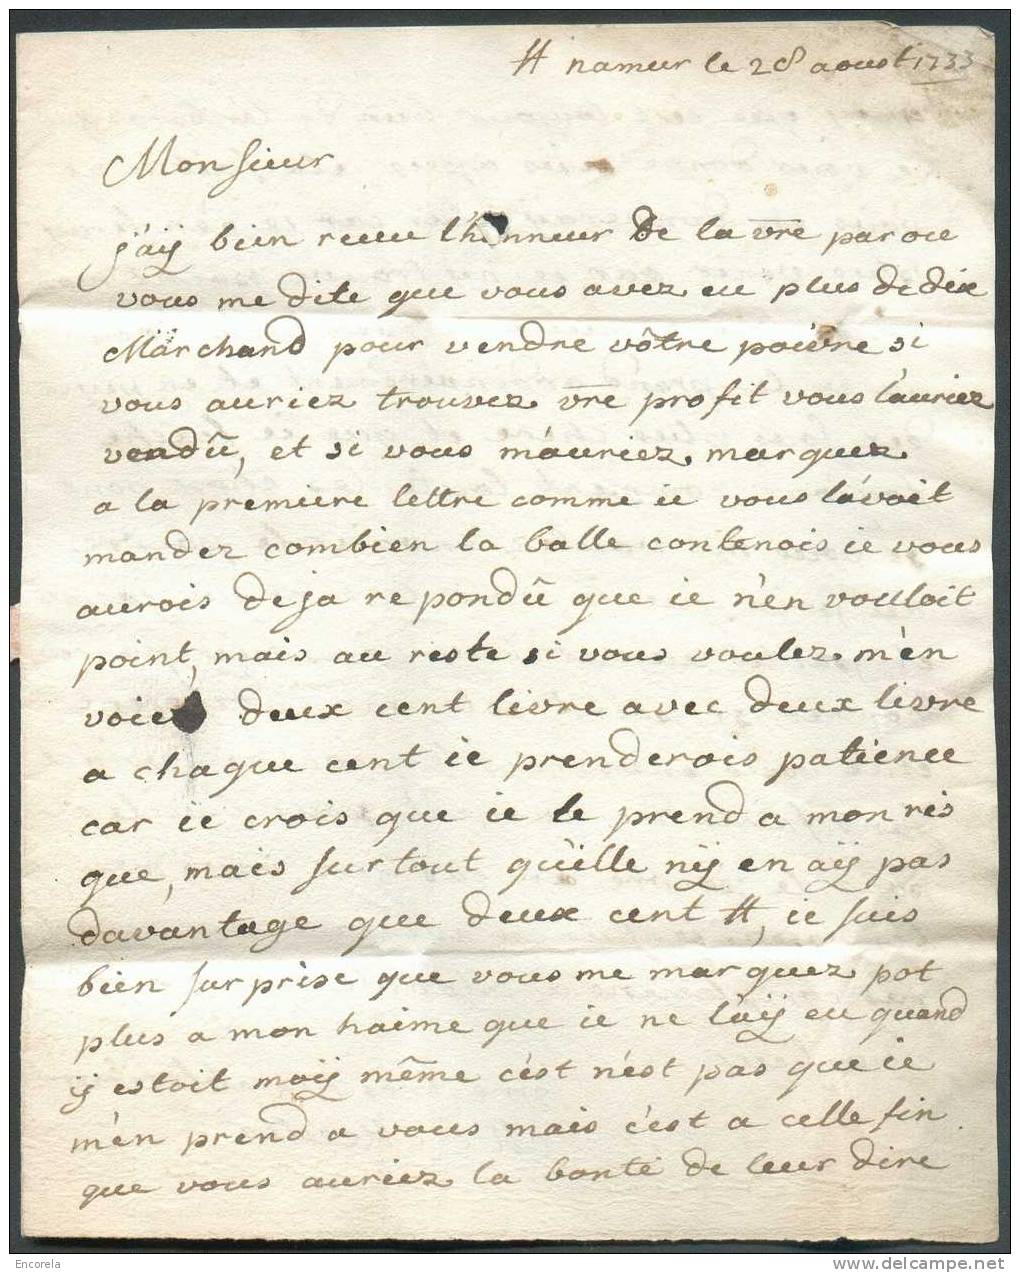 ++ namur le 28 aoust 1733
Monsieur
j'aÿ bien receu lhonneur De la vre par ou
vous me dite que vous avez eu plus de dix
Marchand pour vendre vôtre poivre si
vous auriez trouvez vre profit vous l'auriez
vendû, et si vous m'auriez marquez
a la premiere lettre comme ie vous lavoit
mandez combien la balle contenois ie vous
aurois deja repondû que ie n'en vouloit
point, mais au reste si vous voulez m'en
voier deux cent livre avec deux livre
a chaque cent ie prenderois patience
car ie crois que ie le prend a mon ris
que, mais surtout qu'ille n'ÿ en aÿ pas
davantage que deux cent ++, ie suis
bien surprise que vous me marquez pot
plus a mon haime que ie ne l'aÿ eu quand
ÿ estoit moÿ même c'est n'est pas que ie
m'en prend a vous mais c'est a celle fin
que vous auriez la bonté de leur dire
Encorela
delcampe.net